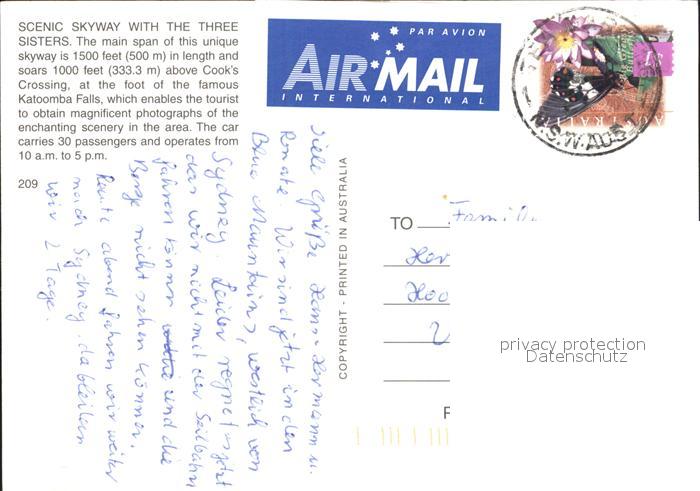 SCENIC SKYWAY WITH THE THREE
SISTERS. The main span of this unique
skyway is 1500 feet (500 m) in length and
soars 1000 feet (333.3 m) above Cook's
Crossing, at the foot of the famous
Katoomba Falls, which enables the tourist
to obtain magnificent photographs of the
enchanting scenery in the area. The car
carries 30 passengers and operates from
10 a.m. to 5 p.m.
209
PAR AVION
AIR MAIL
INTERNATIONAL
N.S.W. AUST
AUSTRALIA
$1
Viele Grüße Hans-Hermann u.
Renate. Wir sind jetzt in den
Blue Mountains, westlich von
Sydney. Leider regnet es jetzt
das wir nicht mit der Seilbahn
fahren können und die
Berge nicht sehen können.
Heute abend fahren wir weiter
nach Sydney, da bleiben
wir 2 Tage.
COPYRIGHT - PRINTED IN AUSTRALIA
TO Famili
Her
Hoo
privacy protection
Datenschutz